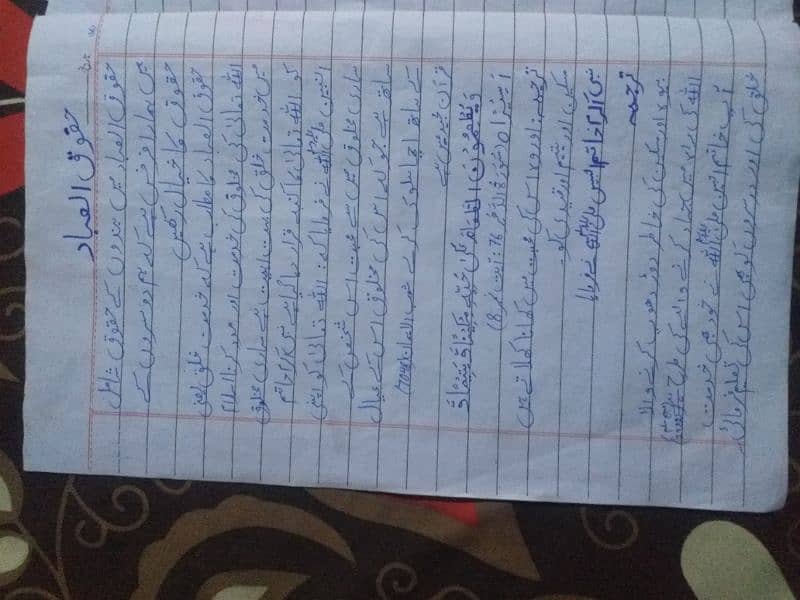 حقوق العباد
حقوق العباد میں بندوں کے حقوق شامل
ہیں ہمارا فرض ہے کہ ہم دوسروں کے
حقوق کا خیال رکھیں
حقوق العباد کا مطلب ہے کہ خدمت خلق یعنی
اللہ تعالیٰ کی مخلوق کی خدمت اور مدد کرنا اسلام
میں خدمت خلق کی بہت اہمیت ہے ساری مخلوق
کو اللہ تعالیٰ کا کنبہ قرار دیا گیا ہے نبی اکرم خاتم
النبیین صلی اللہ نے فرمایا کہ: اللہ تعالیٰ کو اپنی
ساری مخلوق میں سے محبت اس شخص کے
ساتھ ہے جو کہ اس کی مخلوق اس کے عیال
کے ساتھ اچھا سلوک کرے شعب الایمان
قرآن مجید میں ہے
وَيُطْعِمُونَ الطَّعَامَ عَلَىٰ حُبِّهِ مِسْكِينًا وَيَتِيمًا وَ
أَسِيرًا (سورۃ الدھر 76: آیت نمبر 8)
ترجمہ: اور وہ اس کی محبت میں کھانا کھلاتے ہیں
مسکین اور یتیم اور قیدی کو
نبی اکرم خاتم النبیین صلی اللہ نے فرمایا
ترجمہ
بیوہ اور مسکین کی خاطر دوڑ دھوپ کرنے والا
اللہ کی راہ میں جہاد کرنے والے کی طرح ہے
آپ خاتم النبیین صلی اللہ نے خود بھی خدمت
خلق کی اور دوسروں کو بھی اس کی تعلیم فرمائی